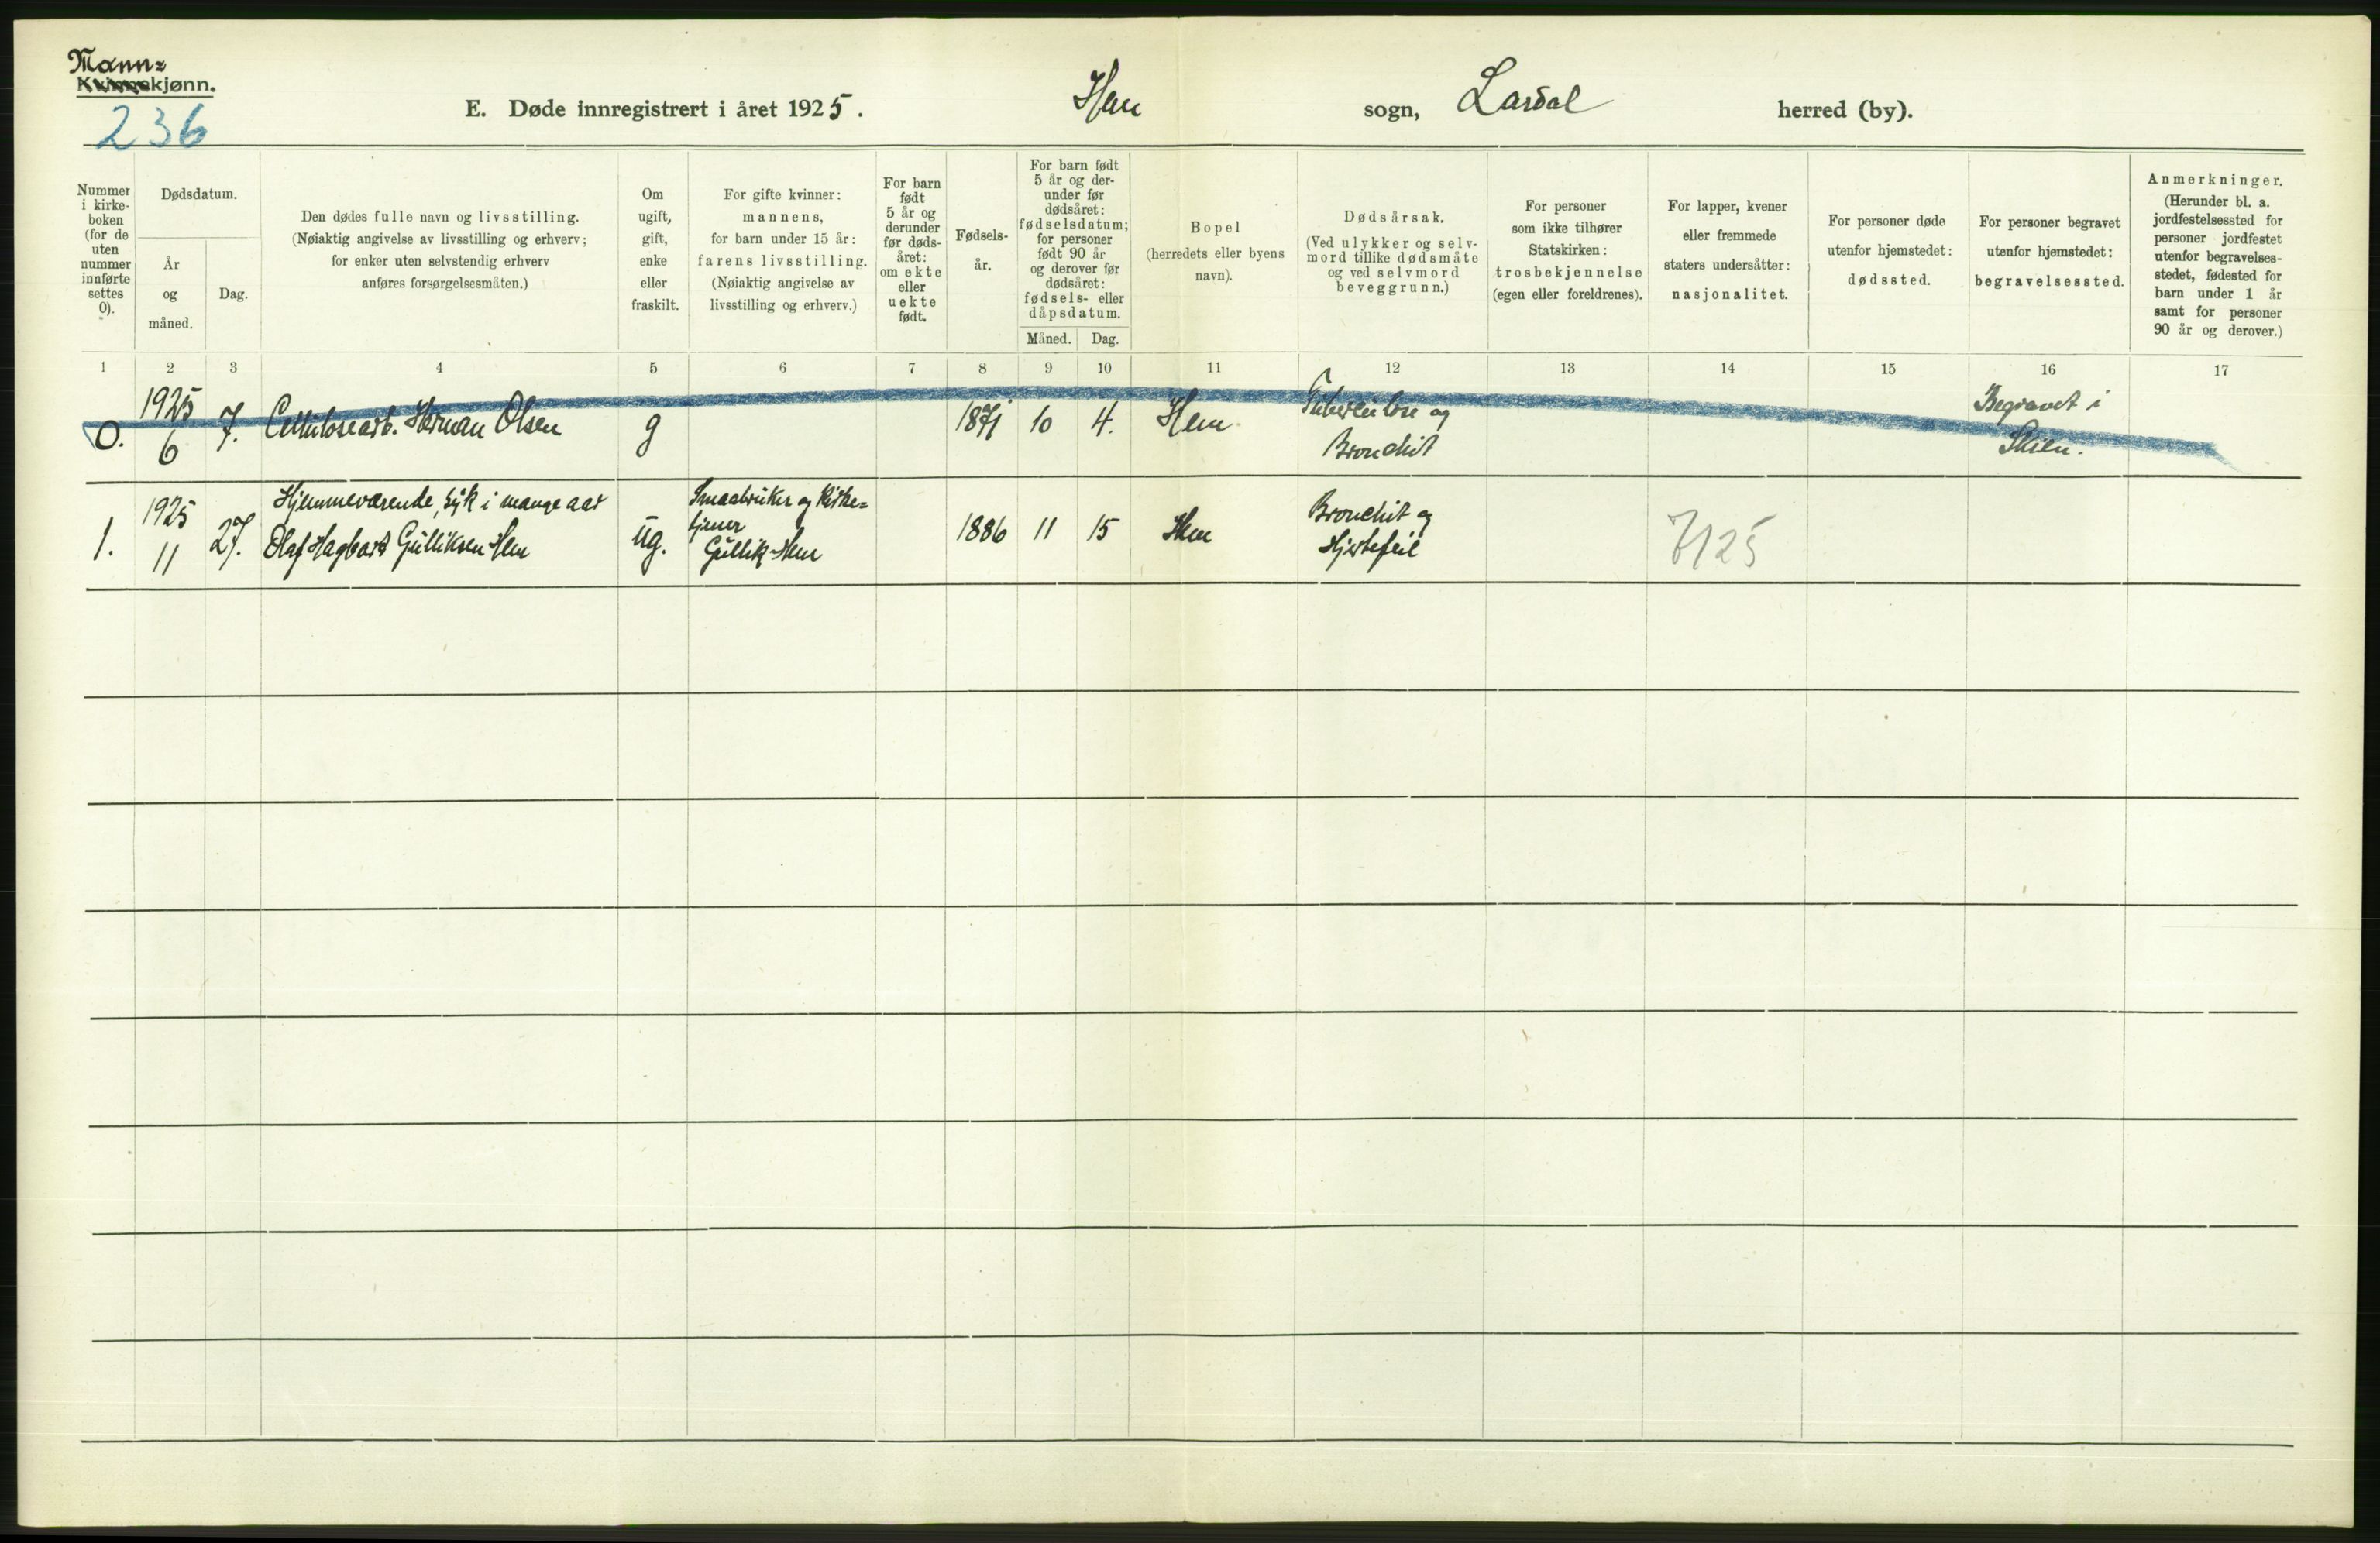 Mann=
Kvinnekjønn.
236
E. Døde innregistrert i året 1925. Hem sogn, Lardal herred (by).
Nummer i kirke-boken (for de uten nummer innførte settes 0).
Dødsdatum.
År og måned.
Dag.
Den dødes fulle navn og livsstilling.
(Nøiaktig angivelse av livsstilling og erhverv;
for enker uten selvstendig erhverv
anføres forsørgelsesmåten.)
Om
ugift,
gift,
enke
eller
fraskilt.
For gifte kvinner:
mannens,
for barn under 15 år:
farens livsstilling.
(Nøiaktig angivelse av
livsstilling og erhverv.)
For barn
født
5 år og
derunder
før døds-
året:
om ekte
eller
uekte
født.
Fødsels-
år.
For barn født
5 år og der-
under før
dødsåret:
fødselsdatum;
for personer
født 90 år
og derover før
dødsåret:
fødsels- eller
dåpsdatum.
Måned. Dag.
Bopel
(herredets eller byens
navn).
Dødsårsak.
(Ved ulykker og selv-
mord tillike dødsmåte
og ved selvmord
beveggrunn.)
For personer
som ikke tilhører
Statskirken:
trosbekjennelse
(egen eller foreldrenes).
For lapper, kvener
eller fremmede
staters undersåtter:
nasjonalitet.
For personer døde
utenfor hjemstedet:
dødssted.
For personer begravet
utenfor hjemstedet:
begravelsessted.
Anmerkninger.
(Herunder bl. a.
jordfestelsessted for
personer jordfestet
utenfor begravelses-
stedet, fødested for
barn under 1 år
samt for personer
90 år og derover.)
1 2 3 4 5 6 7 8 9 10 11 12 13 14 15 16 17
0. 1925 6 7. Cellulosearb. Herman Olsen g 1871 10 4. Hem Tuberculose og
Bronchit
Begravet i
Skien.
1. 1925 11 27. Hjemmeværende, syk i mange aar
Olaf Hagbart Gulliksen Hem
ug.
Smaabruker og Kirke=
tjener
Gullik Hem
1886 11 15 Hem
Bronchit og
Hjertefeil
7125